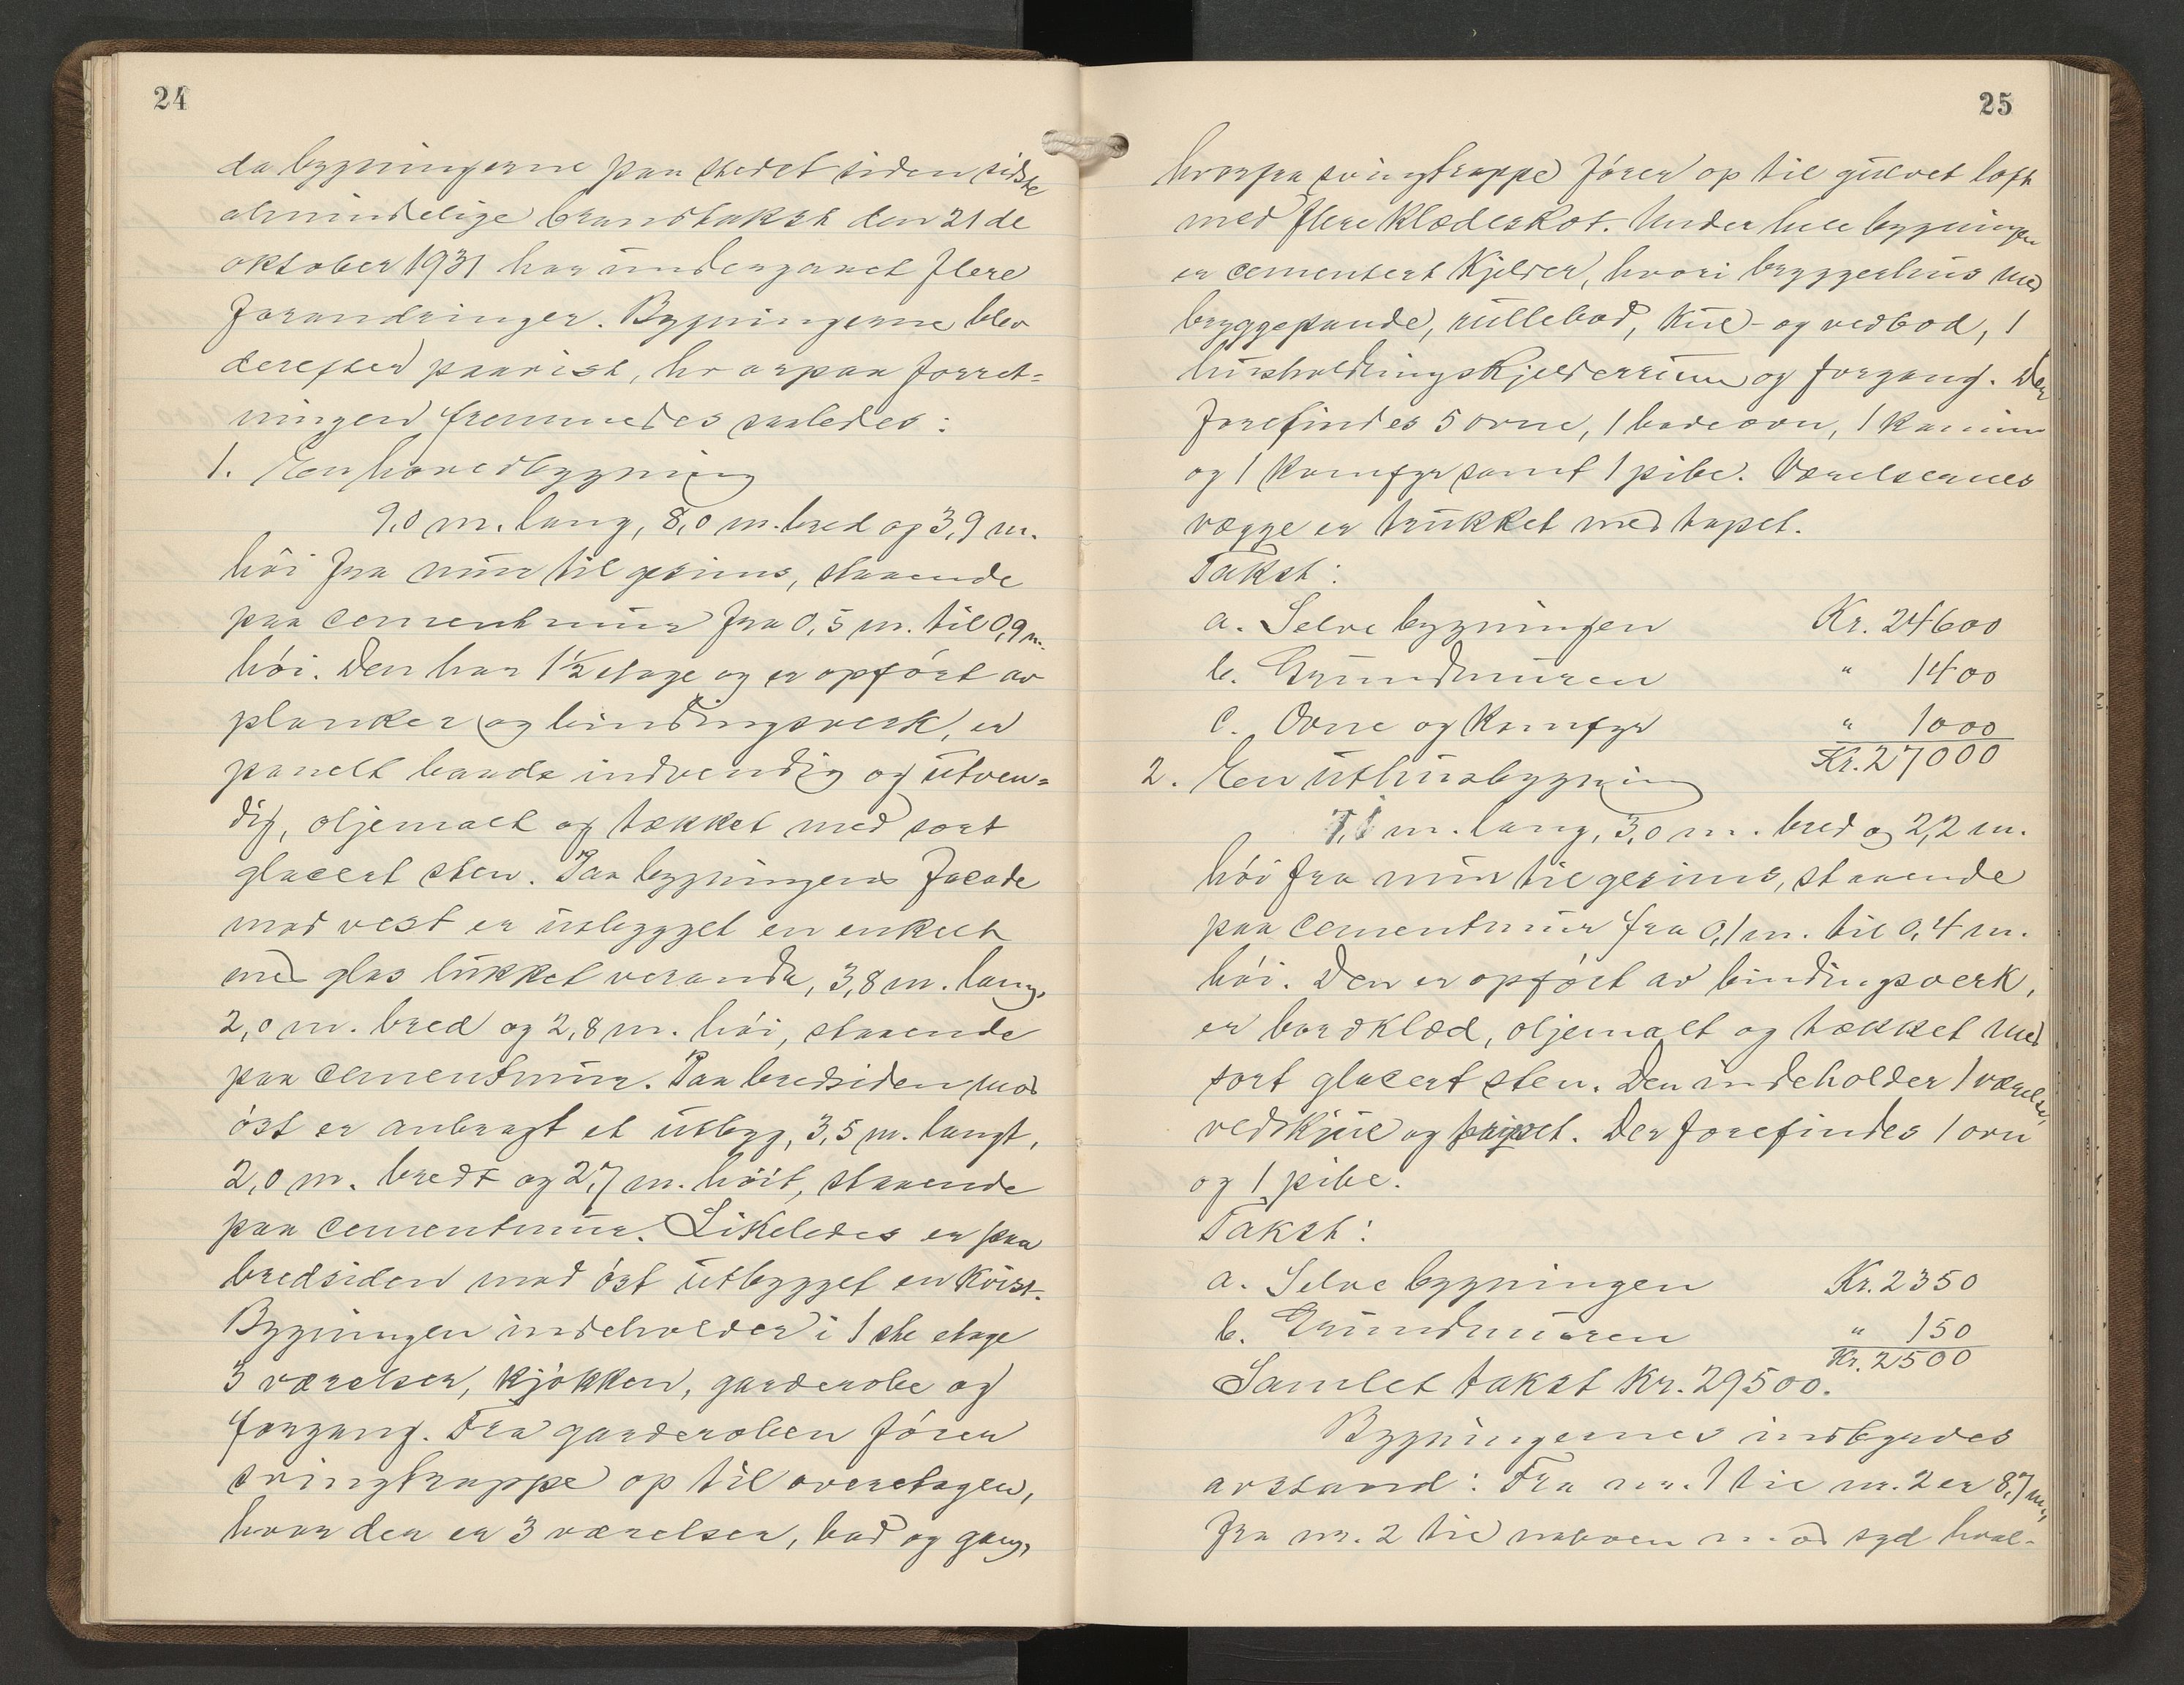 24
da bygningerne paa stedet siden sidste
almindelige brandtakst den 21de
oktober 1931 har undergaaet flere
forandringer. Bygningerne blev
derefter paavist, hvorpaa forret-
ningen fremmedes saaledes:
1. En hovedbygning
9,0 m. lang, 8,0 m. bred og 3,9 m.
høi fra mur til gesims, staaende
paa cementmur fra 0,5 m. til 0,9 m.
høi. Den har 1½ etage og er opført av
planker og bindingsverk, er
panelt baade indvendig og utven-
dig, oljemalt og tækket med sort
glacert sten. Paa bygningens facade
mod vest er utbygget en enkelt
med glas lukket veranda, 3,8 m. lang,
2,0 m. bred og 2,8 m. høi, staaende
paa cementmur. Paa bredsiden mod
øst er anbragt et utbygg, 3,5 m. langt,
2,0 m. bredt og 2,7 m. høit, staaende
paa cementmur. Likeledes er paa
bredsiden mod øst utbygget en kvist.
Bygningen indeholder i 1ste etage
3 værelser, kjøkken, garderobe og
forgang. Fra garderoben fører
svingtrappe op til overetagen,
hvor der er 3 værelser, bad og gang,
25
hvorfra svingtrappe fører op til gulvet loft
med flere klædeskot. Under hele bygningen
er cementert kjelder, hvori bryggerhus med
bryggepande, rullebod, kul- og vedbod, 1
husholdningskjelderrum og forgang. Der
forefindes 5 ovne, 1 badeovn, 1 kamin
og 1 komfyr samt 1 pibe. Værelsernes
vægge er trukket med tapet.
Takst:
a. Selve bygningen Kr. 24600
b. Grundmuren " 1400
c. Ovne og komfyr " 1000
Kr. 27000
2. En uthusbygning
7,1 m. lang, 3,0 m. bred og 2,2 m.
høi fra mur til gesims, staaende
paa cementmur fra 0,1 m. til 0,4 m.
høi. Den er opført av bindingsverk,
er bordklæd, oljemalt og tækket med
sort glacert sten. Den indeholder 1 værelse,
vedskjul og privet. Der forefindes 1 ovn
og 1 pibe.
Takst:
a. Selve bygningen Kr. 2350
b. Grundmuren " 150
Kr. 2500
Samlet takst Kr. 29500.
Bygningernes indbyrdes
avstand: Fra nr. 1 til nr. 2 er 8,7 m.,
fra nr. 2 til naboen mod syd hval-